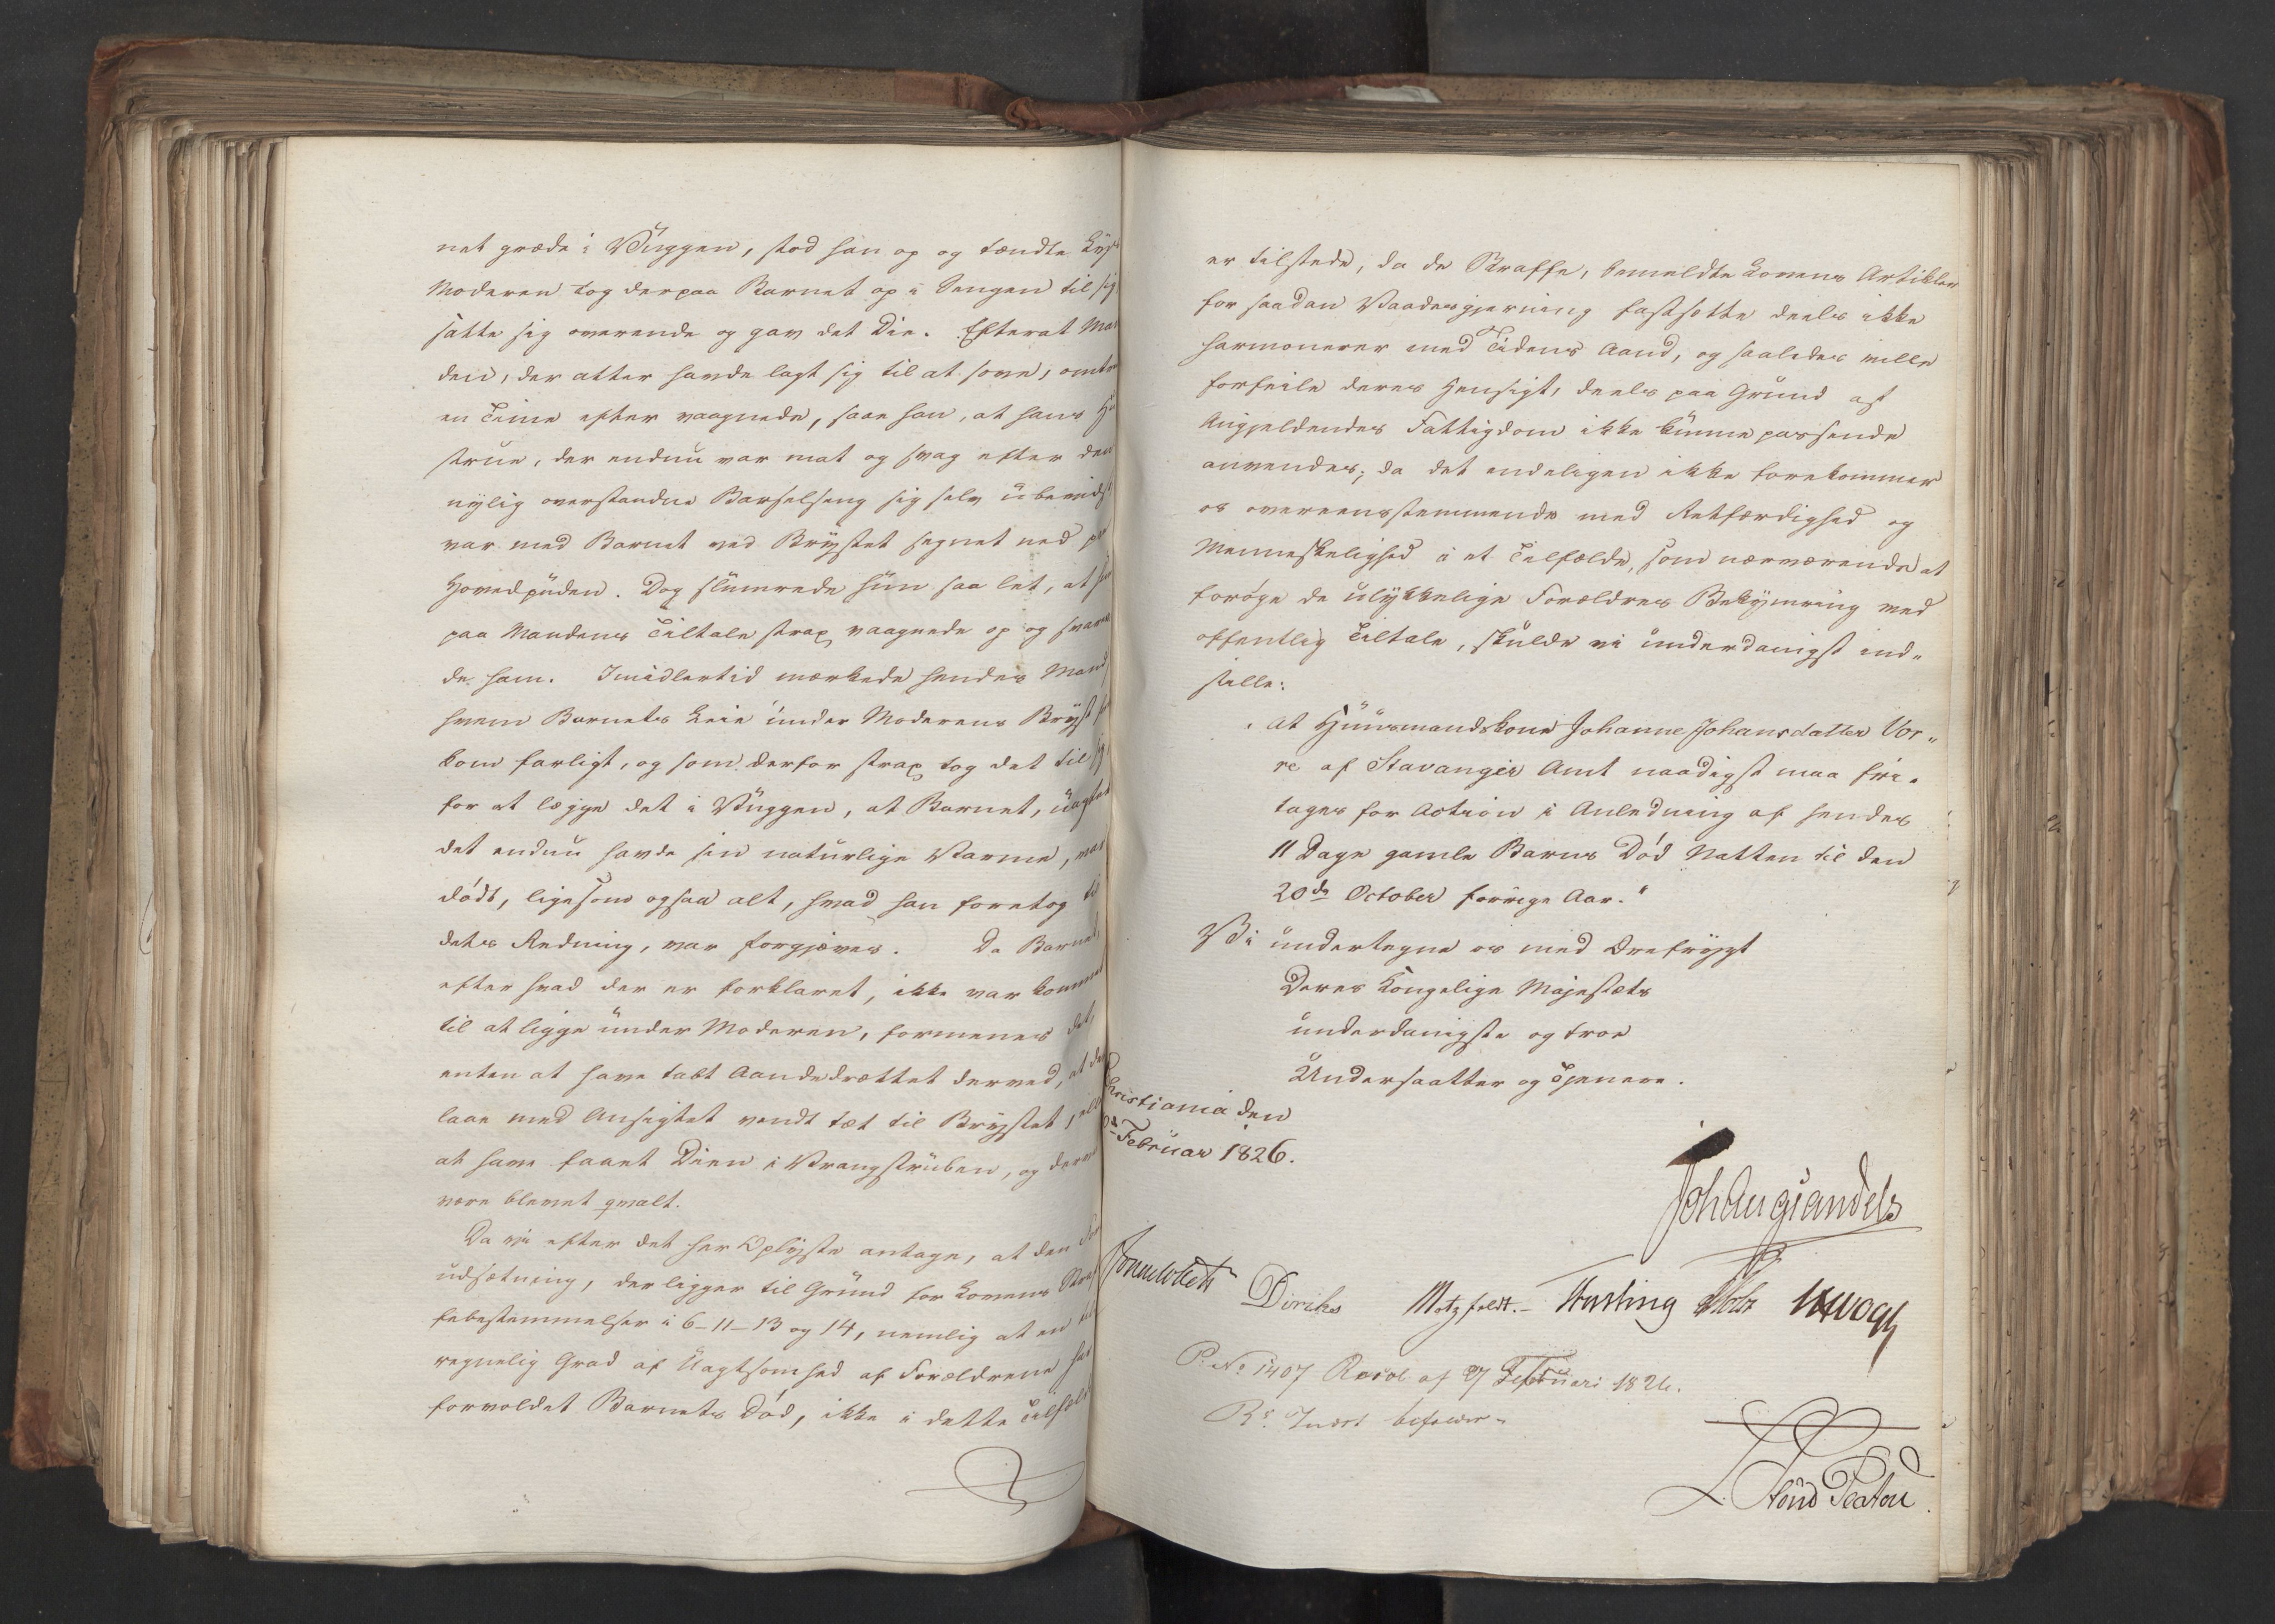 net græde i Vuggen, stod han op og tændte Lys
Moderen tog derpaa Barnet op i Sengen til sig
satte sig overende og gav det Die. Efterat Man
den, der atter havde lagt sig til at sove, omtre
en Time efter vaagnede, saae han, at hans Hu
strue, der endnu var mat og svag efter den
nylig overstandne Barselseng sig selv ubevidst
var med Barnet ved Brystet segnet ned paa
Hovedpuden. Dog slumrede hun saa let, at hun
paa Mandens Tiltale strax vaagnede op og svare
de ham. Imidlertid mærkede hendes Mand
hvem Barnets Leie under Moderens Bryst fore
kom farligt, og som derfor strax tog det til sig,
for at lægge det i Vuggen, at Barnet, uagtet
det endnu havde sin naturlige Varme, var
dødt, ligesom ogsaa alt, hvad han foretog til
dets Redning, var forgjæves. Da Barnet,
efter hvad der er forklaret, ikke var kommet
til at ligge under Moderen, formenes det,
enten at have tabt Aandedrættet derved, at det
laae med Ansigtet vendt tæt til Brystet, eller
at have faaet Dien i Vrangstruben, og derved
være blevet qvalt.
Da vi efter det her Oplyste antage, at den For
udsætning, der ligger til Grund for Lovens Straf
febestemmelser i 6-11-13 og 14, nemlig at en
regnelig Grad af Uagtsomhed af Forældrene har
forvoldet Barnets Død, ikke i dette Tilfælde
er tilstede, da de Straffe, bemeldte Lovens Artikler
for saadan Vaadesgjerning fastsette deels ikke
harmonerer med Tidens Aand, og saaledes ville
forfeile deres Hensigt, deels paa Grund af
Angjeldendes Fattigdom ikke kunne passende
anvendes; da det endeligen ikke forekommer
os overeensstemmende med Retfærdighed og
Menneskelighed i et Tilfælde, som nærværende at
forøge de ulykkelige Forældres Bekymring ved
offentlig Tiltale, skulde vi underdanigst ind-
stille:
at Huusmandskone Johanne Johansdatter Vor-
re af Stavanger Amt naadigst maa fri-
tages for Action i Anledning af hendes
11 Dage gamle Barns Død Natten til den
20de October forrige Aar."
Vi undertegne os med Ærefrygt
Deres Kongelige Majestæts
underdanigste og troe
Undersaatter og Tjenere.
Christiania den
Februar 1826.
Joh Aug Sandels
Sommerhielm Diriks Motzfeldt.- Fasting Holst JH Vogt
P. No 1407 Resol af 27 Februari 1826.
Rs. Indst bifaldes